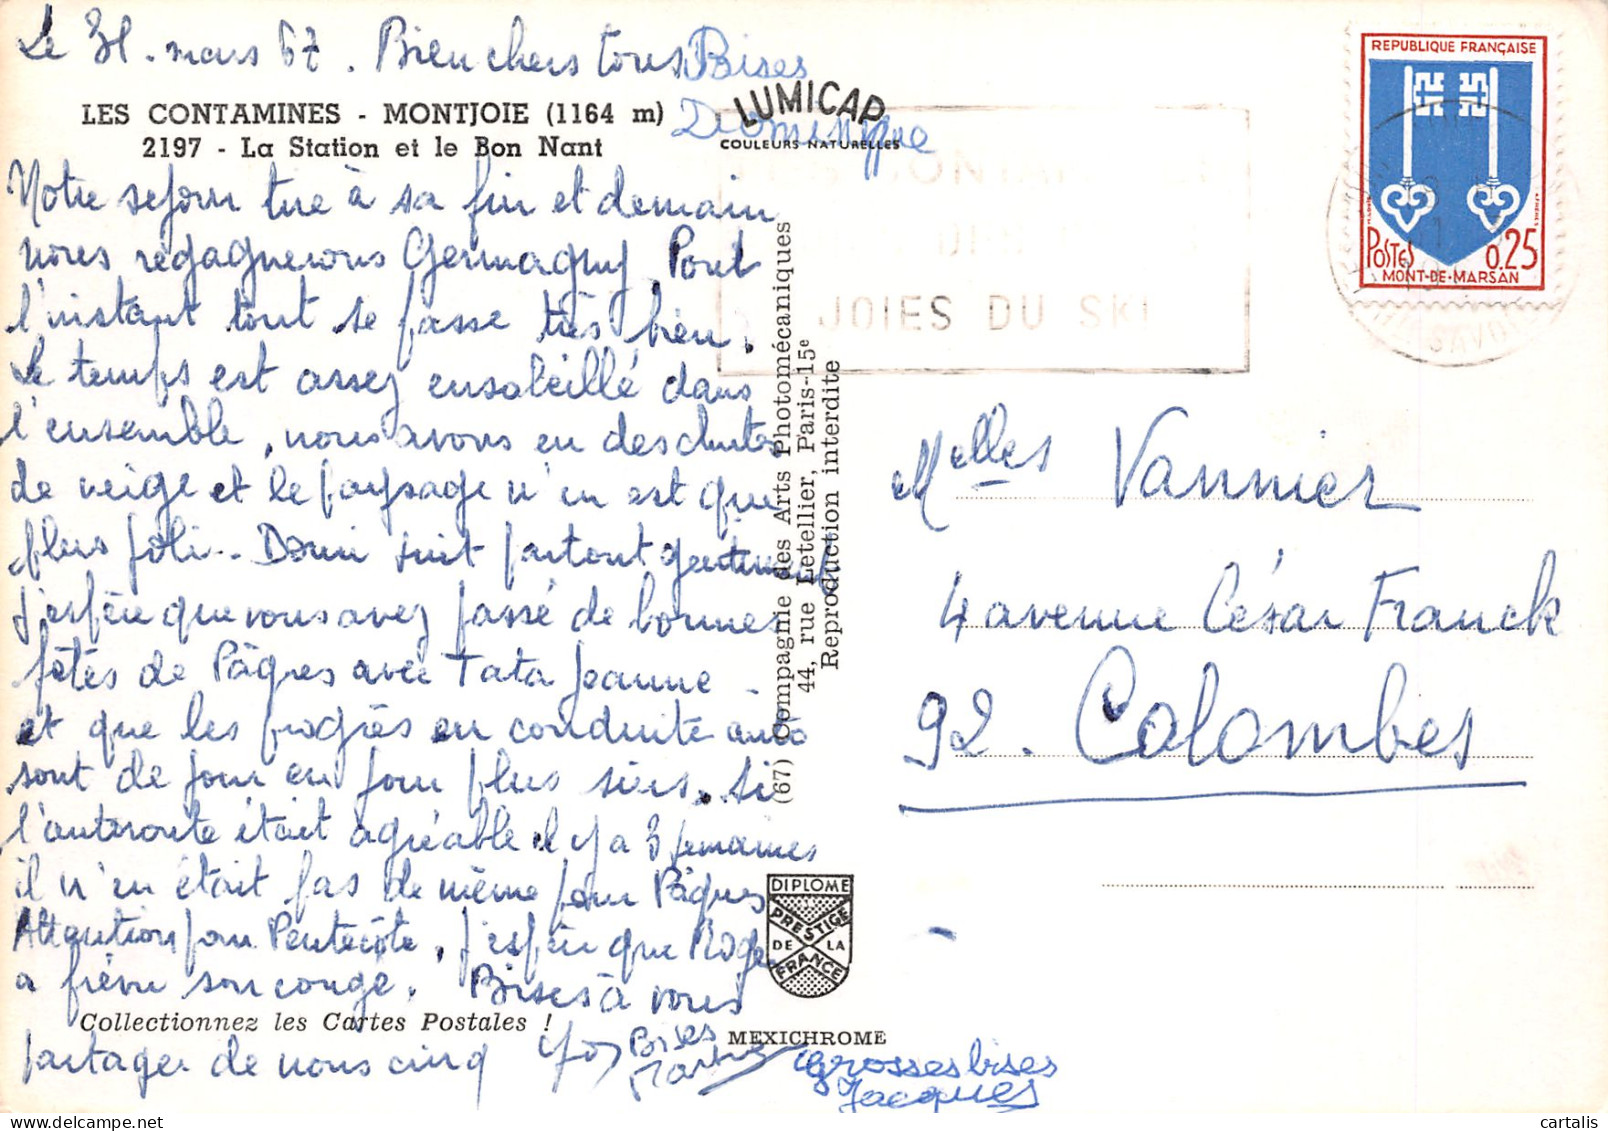 Le 31 mars 67. Bien chers tous Bises
Dominique
LES CONTAMINES - MONTJOIE (1164 m)
2197 - La Station et le Bon Nant
LUMICAP
COULEURS NATURELLES
Notre séjour tire à sa fin et demain
nous regagnerons Germagny Pour
l'instant tout se passe très bien.
Le temps est assez ensoleillé dans
l'ensemble, nous avons eu des chutes
de neige et le paysage n'en est que
plus joli.. Domi suit partout gentiment
J'espère que vous avez passé de bonnes
fêtes de Pâques avec Tata Jeanne -
et que les progrès en conduite auto
sont de jour en jour plus sûrs. Si
l'autoroute était agréable il y a 3 semaines
il n'en était pas de même pour Pâques
Attention pour Pentecôte, j'espère que Roger
a fièvre son congé. Bises à vous
Collectionnez les Cartes Postales !
partager de nous cinq
Bises
Grosses bises
Jacques
MEXICHROME
DIPLOME
PRESTIGE
DE LA
FRANCE
(67) Compagnie des Arts Photomécaniques
44, rue Letellier, Paris-15e
Reproduction interdite
JOIES DU SKI
REPUBLIQUE FRANÇAISE
POSTES 0,25
MONT-DE-MARSAN
SAVOIE
Melles Vannier
4 avenue César Franck
92. Colombes